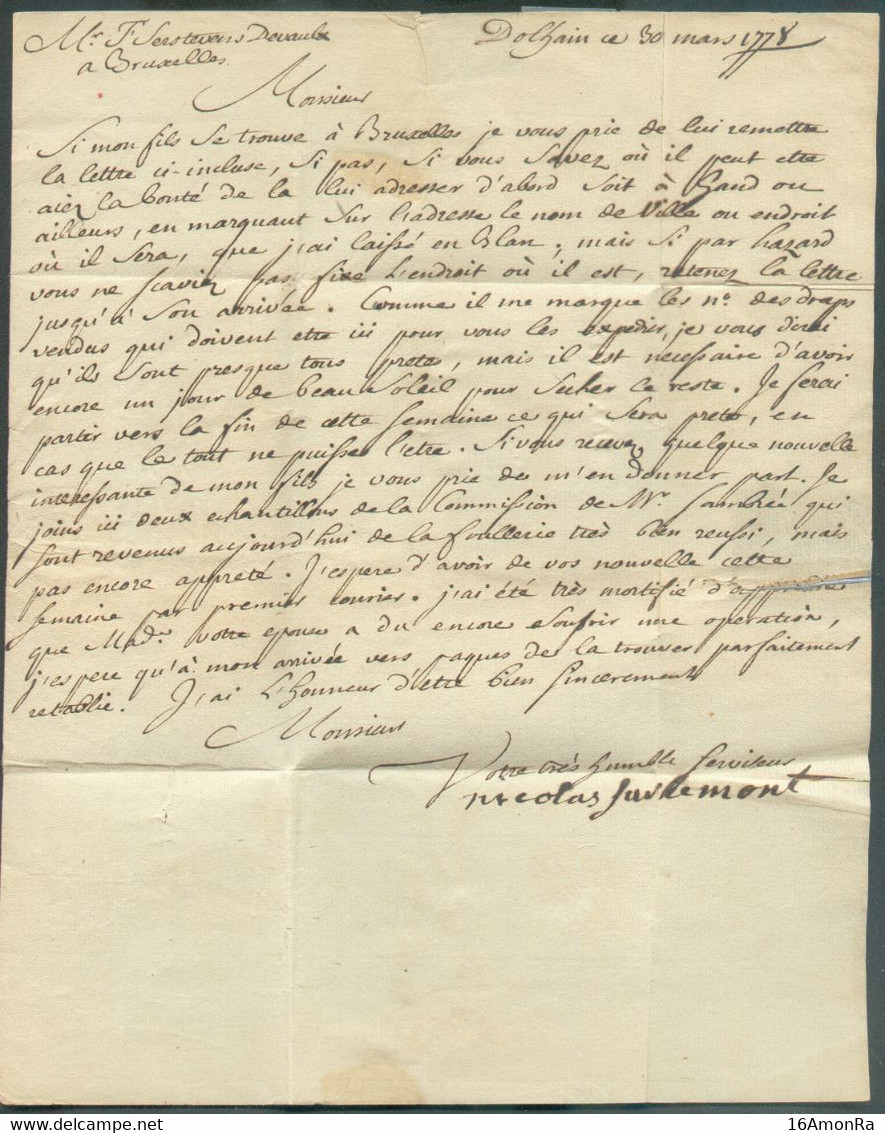 Mr. F Serstevens Devaulx
a Bruxelles.
Dolhain ce 30 mars 1778
Monsieur
Si mon fils se trouve à Bruxelles je vous prie de lui remettre
la lettre ci-incluse, Si pas, Si vous Savez où il peut etre
aiez la bonté de la lui adresser d'abord Soit à Gand ou
ailleurs, en marquant Sur l'adresse le nom de Ville ou endroit
où il Sera, que j'ai laissé en Blan; mais Si par hazard
vous ne scaviez pas fixe l'endroit où il est, retenez la lettre
jusqu'à Son arrivée. Comme il me marque les no. des draps
vendus qui doivent etre ici pour vous les expedier, je vous dirai
qu'ils Sont presque tous prets, mais il est necessaire d'avoir
encore un jour de beau Soleil pour Secher le reste. Je ferai
partir vers la fin de cette Semaine ce qui Sera prete, en
cas que le tout ne puisse l'etre. Si vous recevez quelque nouvelle
interessante de mon fils je vous prie de m'en donner part. Je
joins ici deux echantillons de la Commission de Mr. Sambrée qui
sont revenus aujourd'hui de la foullerie très bien reussi, mais
pas encore appreté. J'espere d'avoir de vos nouvelle cette
Semaine par premier courier. j'ai été très mortifié d'apprendre
que Made. votre epouse a du encore Soufrir une operation,
j'espere qu'à mon arrivée vers paques de la trouver parfaitement
retablie. J'ai l'honneur d'etre bien Sincerement
Monsieur
Votre très humble Serviteur
nicolas
16AmonRa